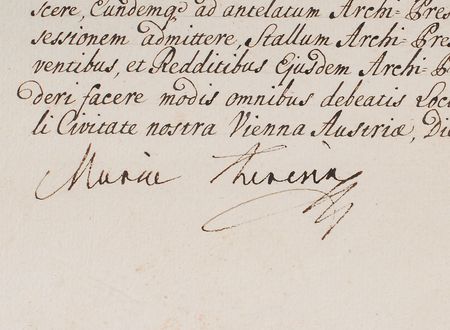 scere, Eundemq̃ ad antelatum Archi-Pres
sessionem admittere, Stallum Archi-Pres
ventibus, et Redditibus Ejusdem Archi-P
deri facere modis omnibus debeatis Loc
li Civitate nostra Vienna Austriæ, Die
Marie Theresia